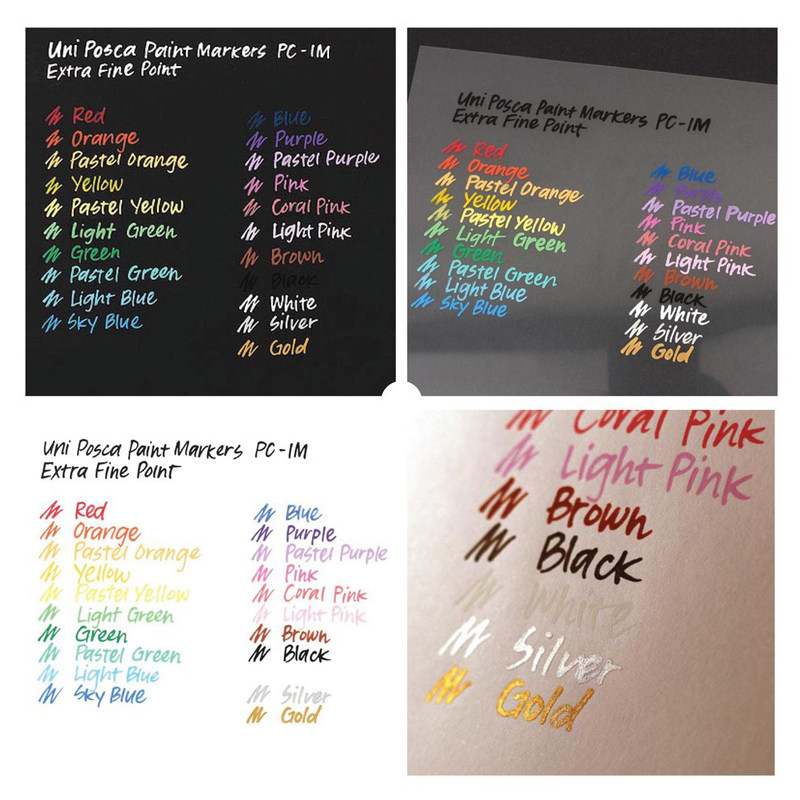 Uni Posca Paint Markers PC-1M
Extra Fine Point
Red
Orange
Pastel Orange
Yellow
Pastel Yellow
Light Green
Green
Pastel Green
Light Blue
Sky Blue
Blue
Purple
Pastel Purple
Pink
Coral Pink
Light Pink
Brown
Black
White
Silver
Gold
Uni Posca Paint Markers PC-1M
Extra Fine Point
Red
Orange
Pastel Orange
Yellow
Pastel Yellow
Light Green
Green
Pastel Green
Light Blue
Sky Blue
Blue
Purple
Pastel Purple
Pink
Coral Pink
Light Pink
Brown
Black
White
Silver
Gold
Uni Posca Paint Markers PC-1M
Extra Fine Point
Red
Orange
Pastel Orange
Yellow
Pastel Yellow
Light Green
Green
Pastel Green
Light Blue
Sky Blue
Blue
Purple
Pastel Purple
Pink
Coral Pink
Light Pink
Brown
Black
Silver
Gold
Coral Pink
Light Pink
Brown
Black
White
Silver
Gold